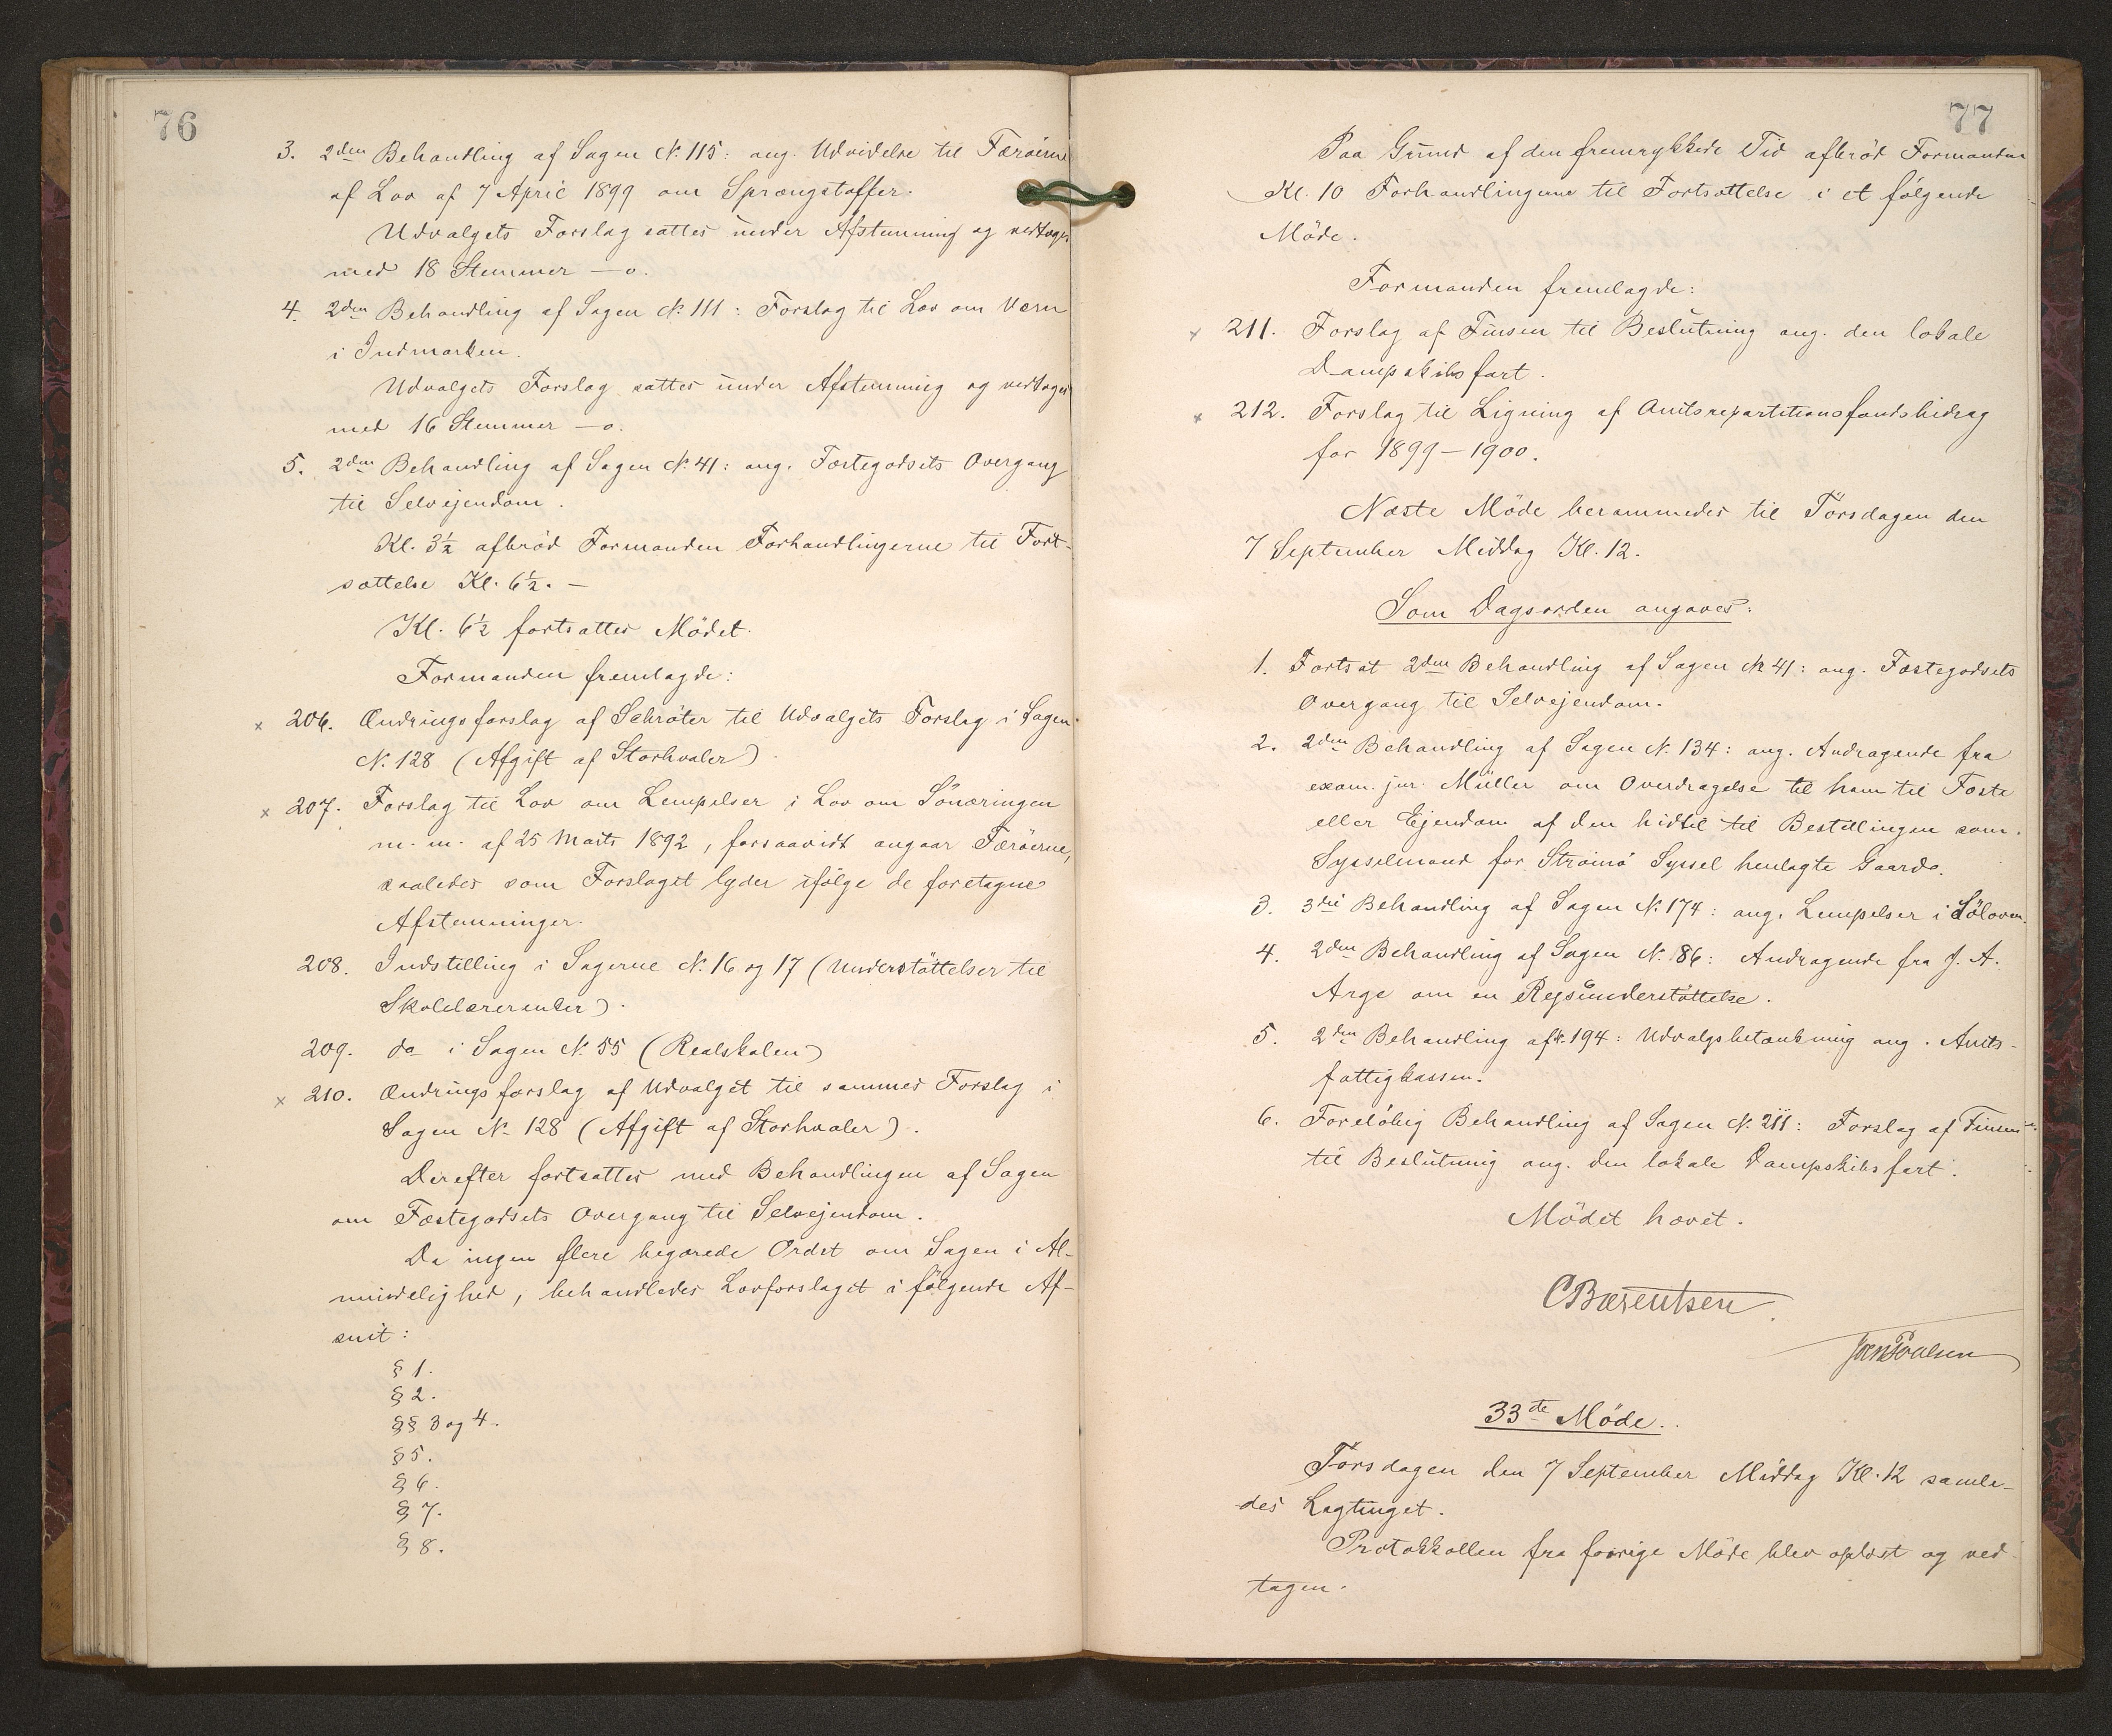 76
3. 2den Behandling af Sagen N. 115: ang. Udvidelse til Færøerne
af Lov af 7 April 1899 om Sprængstoffer.
Udvalgets Forslag sattes under Afstemning og vedtoges
med 18 Stemmer — o.
4. 2den Behandling af Sagen N. 111: Forslag til Lov om Værn
i Indmarken.
Udvalgets Forslag sattes under Afstemning og vedtoges
med 16 Stemmer — o.
5. 2den Behandling af Sagen N. 41: ang. Fæstegodsets Overgang
til Selvejendom.
Kl. 3½ afbrød Formanden Forhandlingerne til Fort-
sættelse Kl. 6½. —
Kl. 6½ fortsattes Mödet.
Formanden fremlagde:
x 206. Ændringsforslag af Schröter til Udvalgets Forslag i Sagen
N. 128 (Afgift af Storhvaler).
x 207. Forslag til Lov om Lempelser i Lov om Sönæringen
m. m. af 25 Marts 1892, forsaavidt angaar Færöerne,
saaledes som Forslaget lyder ifölge de foretagne
Afstemninger.
208. Indstilling i Sagerne N. 16 og 17 (Understöttelser til
Skolelærerenker).
209. do i Sagen N. 55 (Realskolen)
x 210. Ændringsforslag af Udvalget til sammes Forslag i
Sagen N. 128 (Afgift af Storhvaler).
Derefter fortsattes med Behandlingen af Sagen
om Fæstegodsets Overgang til Selvejendom.
Da ingen flere begærede Ordet om Sagen i Al-
mindelighed, behandledes Lovforslaget i fölgende Af-
snit:
§ 1.
§ 2.
§§ 3 og 4.
§ 5.
§ 6.
§ 7.
§ 8.
77
Paa Grund af den fremrykkede Tid afbröd Formanden
Kl. 10 Forhandlingerne til Fortsættelse i et fölgende
Möde.
Formanden fremlagde:
x 211. Forslag af Finsen til Beslutning ang. den lokale
Dampskibsfart.
x 212. Forslag til Ligning af Amtsrepartitionsfondsbidrag
for 1899–1900.
Næste Möde berammedes til Torsdagen den
7 September Middag Kl. 12.
Som Dagsorden angaves:
1. Fortsat 2den Behandling af Sagen N. 41: ang. Fæstegodsets
Overgang til Selvejendom.
2. 2den Behandling af Sagen N. 134: ang. Andragende fra
exam. jur. Müller om Overdragelse til ham til Fæste
eller Ejendom af den hidtil til Bestillingen som
Sysselmand for Strömö Syssel henlagte Gaarde.
3. 3die Behandling af Sagen N. 174: ang. Lempelser i Söloven.
4. 2den Behandling af Sagen N. 86: Andragende fra J. A.
Arge om en Rejseunderstöttelse.
5. 2den Behandling af N. 194: Udvalgsbetænkning ang. Amts-
fattigkassen.
6. Forelöbig Behandling af Sagen N. 211: Forslag af Finsen
til Beslutning ang. den lokale Dampskibsfart.
Mödet hævet.
CBærentsen
33te Möde.
Torsdagen den 7 September Middag Kl. 12 samle-
des Lagtinget.
Protokkollen fra forrige Möde blev oplæst og ved-
tagen.